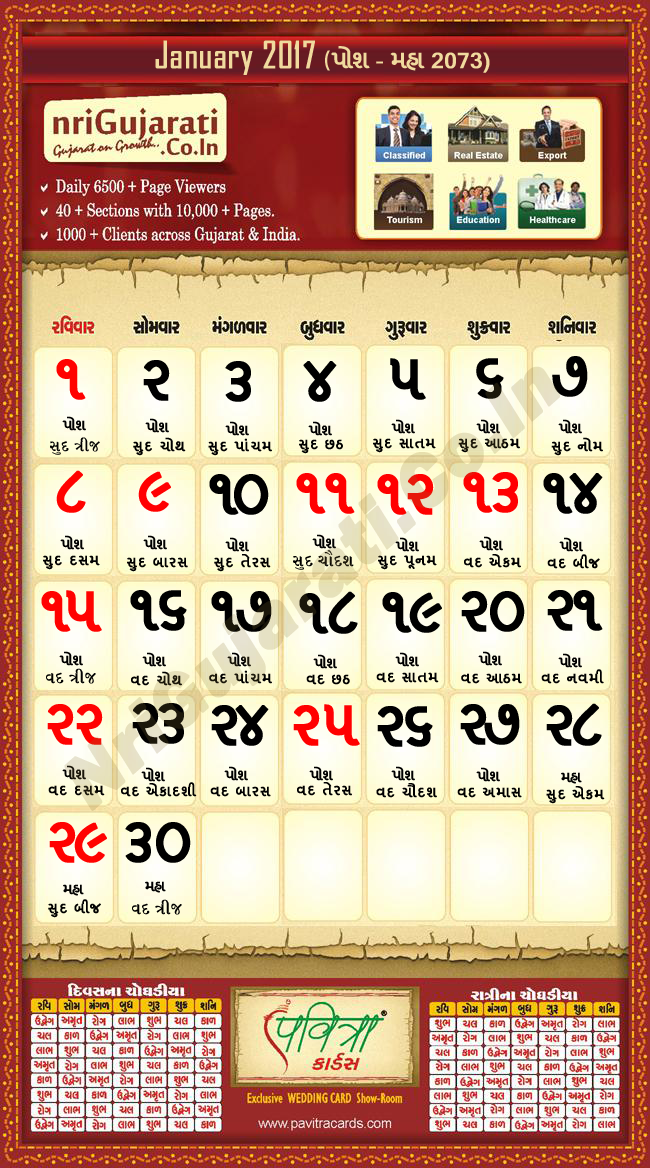 January 2017 (પોશ - મહા 2073)
nriGujarati
Gujarat on Growth..
.Co.In
Daily 6500 + Page Viewers
40 + Sections with 10,000 + Pages.
1000 + Clients across Gujarat & India.
Classified Real Estate Export
Tourism Education Healthcare
રવિવાર સોમવાર મંગળવાર બુધવાર ગુરૂવાર શુક્રવાર શનિવાર
૧ ૨ ૩ ૪ ૫ ૬ ૭
પોશ પોશ પોશ પોશ પોશ પોશ પોશ
સુદ ત્રીજ સુદ ચોથ સુદ પાંચમ સુદ છઠ સુદ સાતમ સુદ આઠમ સુદ નોમ
૮ ૯ ૧૦ ૧૧ ૧૨ ૧૩ ૧૪
પોશ પોશ પોશ પોશ પોશ પોશ પોશ
સુદ દસમ સુદ બારસ સુદ તેરસ સુદ ચૌદશ સુદ પૂનમ વદ એકમ વદ બીજ
૧૫ ૧૬ ૧૭ ૧૮ ૧૯ ૨૦ ૨૧
પોશ પોશ પોશ પોશ પોશ પોશ પોશ
વદ ત્રીજ વદ ચોથ વદ પાંચમ વદ છઠ વદ સાતમ વદ આઠમ વદ નવમી
૨૨ ૨૩ ૨૪ ૨૫ ૨૬ ૨૭ ૨૮
પોશ પોશ પોશ પોશ પોશ પોશ મહા
વદ દસમ વદ એકાદશી વદ બારસ વદ તેરસ વદ ચૌદશ વદ અમાસ સુદ એકમ
૨૯ ૩૦
મહા મહા
સુદ બીજ વદ ત્રીજ
NriGujarati.Co.In
દિવસના ચોઘડીયા
રવિ સોમ મંગળ બુધ ગુરૂ શુક્ર શનિ
ઉદ્વેગ અમૃત રોગ લાભ શુભ ચલ કાળ
ચલ કાળ ઉદ્વેગ અમૃત રોગ લાભ શુભ
લાભ શુભ ચલ કાળ ઉદ્વેગ અમૃત રોગ
અમૃત રોગ લાભ શુભ ચલ કાળ ઉદ્વેગ
કાળ ઉદ્વેગ અમૃત રોગ લાભ શુભ ચલ
શુભ ચલ કાળ ઉદ્વેગ અમૃત રોગ લાભ
રોગ લાભ શુભ ચલ કાળ ઉદ્વેગ અમૃત
ઉદ્વેગ અમૃત રોગ લાભ શુભ ચલ કાળ
પવિત્રા®
કાર્ડસ
Exclusive WEDDING CARD Show-Room
www.pavitracards.com
રાત્રીના ચોઘડીયા
રવિ સોમ મંગળ બુધ ગુરૂ શુક્ર શનિ
શુભ ચલ કાળ ઉદ્વેગ અમૃત રોગ લાભ
અમૃત રોગ લાભ શુભ ચલ કાળ ઉદ્વેગ
ચલ કાળ ઉદ્વેગ અમૃત રોગ લાભ શુભ
રોગ લાભ શુભ ચલ કાળ ઉદ્વેગ અમૃત
કાળ ઉદ્વેગ અમૃત રોગ લાભ શુભ ચલ
લાભ શુભ ચલ કાળ ઉદ્વેગ અમૃત રોગ
ઉદ્વેગ અમૃત રોગ લાભ શુભ ચલ કાળ
શુભ ચલ કાળ ઉદ્વેગ અમૃત રોગ લાભ